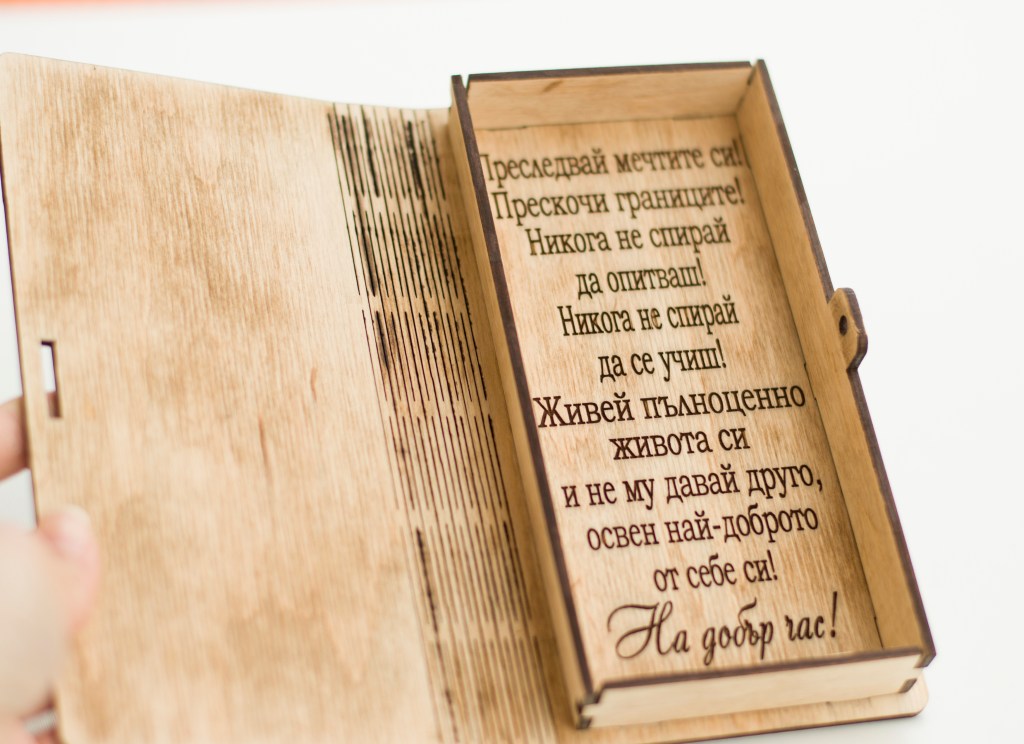 Преследвай мечтите си!
Прескочи границите!
Никога не спирай
да опитваш!
Никога не спирай
да се учиш!
Живей пълноценно
живота си
и не му давай друго,
освен най-доброто
от себе си!
На добър час!